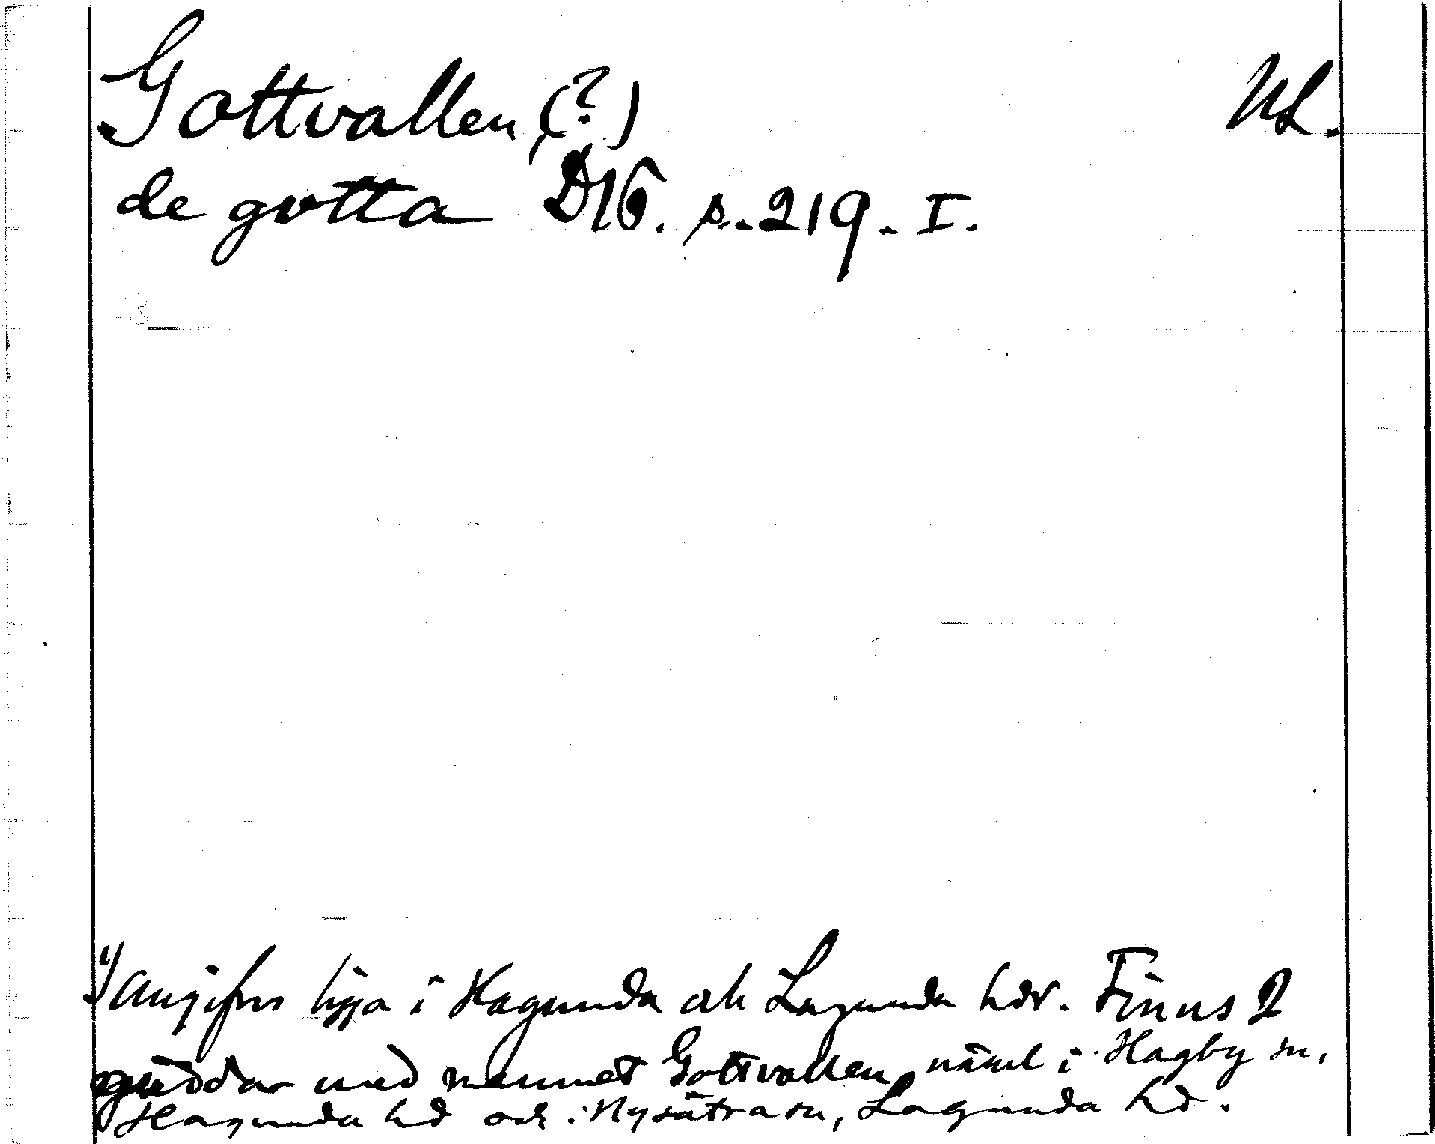 Gottvallen (?) UL.
de gotta D16. s. 219. I.
angifves ligga i Hagunda och Lagunda hdr. Finns 2
gårdar med namnet Gottvallen näml i Hagby sn,
Hagunda hd och i Nysätra sn, Lagunda hd.